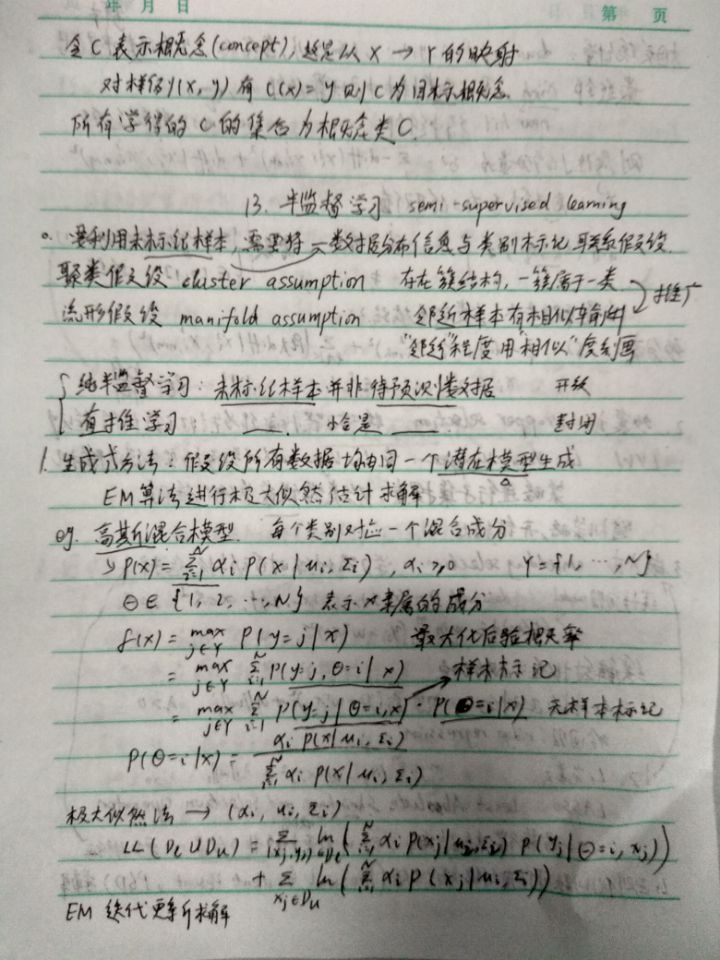 年 月 日 第 页
令 C 表示概念(concept), 这是从 X → Y 的映射
对样例(x, y) 有 c(x) = y 则 C 为目标概念.
所有学得的 C 的集合为概念类C.
13. 半监督学习 semi-supervised learning
0. 要利用未标记样本, 需要将一数据分布信息与类别标记联系假设
聚类假设 cluster assumption 存在簇结构, 一簇属于一类.
流形假设 manifold assumption 邻近样本有相似输出 推广
"邻近"程度用"相似"度刻画
纯半监督学习: 未标记样本并非待预测数据 开放
有推学习 —— 恰是 —— 封闭
1. 生成式方法: 假设所有数据均由同一个潜在模型生成
EM算法进行极大似然估计求解
eg. 高斯混合模型. 每个类别对应一个混合成分
p(x) = Σ_{i=1}^{N} αi p(x|μi, Σi), αi ≥ 0 Y = {1, ..., N}
Θ ∈ {1, 2, ..., N} 表示 x 隶属的成分
f(x) = max_{j∈Y} P(y=j|x) 最大化后验概率
= max_{j∈Y} Σ_{i=1}^{N} P(y=j, Θ=i|x) 样本标记
= max_{j∈Y} Σ_{i=1}^{N} P(y=j|Θ=i, x) · P(Θ=i|x) 无样本标记
P(Θ=i|x) = αi p(x|μi, Σi) / Σ_{i=1}^{N} αi p(x|μi, Σi)
极大似然法 → (αi, μi, Σi)
LL(Dl ∪ Du) = Σ_{(xj,yj)∈Dl} ln(Σ_{i=1}^{N} αi p(xj|μi, Σi) p(yj|Θ=i, xj))
+ Σ_{xj∈Du} ln(Σ_{i=1}^{N} αi p(xj|μi, Σi))
EM 迭代更新求解